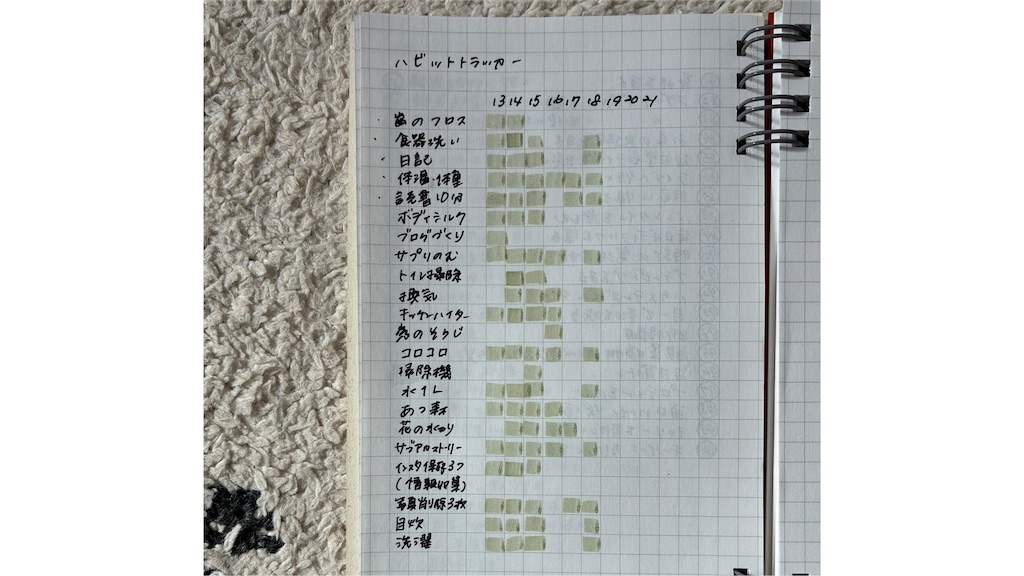 ハビットトラッカー
13 14 15 16 17 18 19 20 21
歯のフロス
食器洗い
日記
体温・体重
読書10分
ボディミルク
ブログづくり
サプリのむ
トイレ掃除
換気
キッチンハイター
窓のそうじ
コロコロ
掃除機
水1L
あつ森
花の水やり
サブアカストーリー
インスタ保存3つ
(情報収集)
写真削除3枚
自炊
洗濯